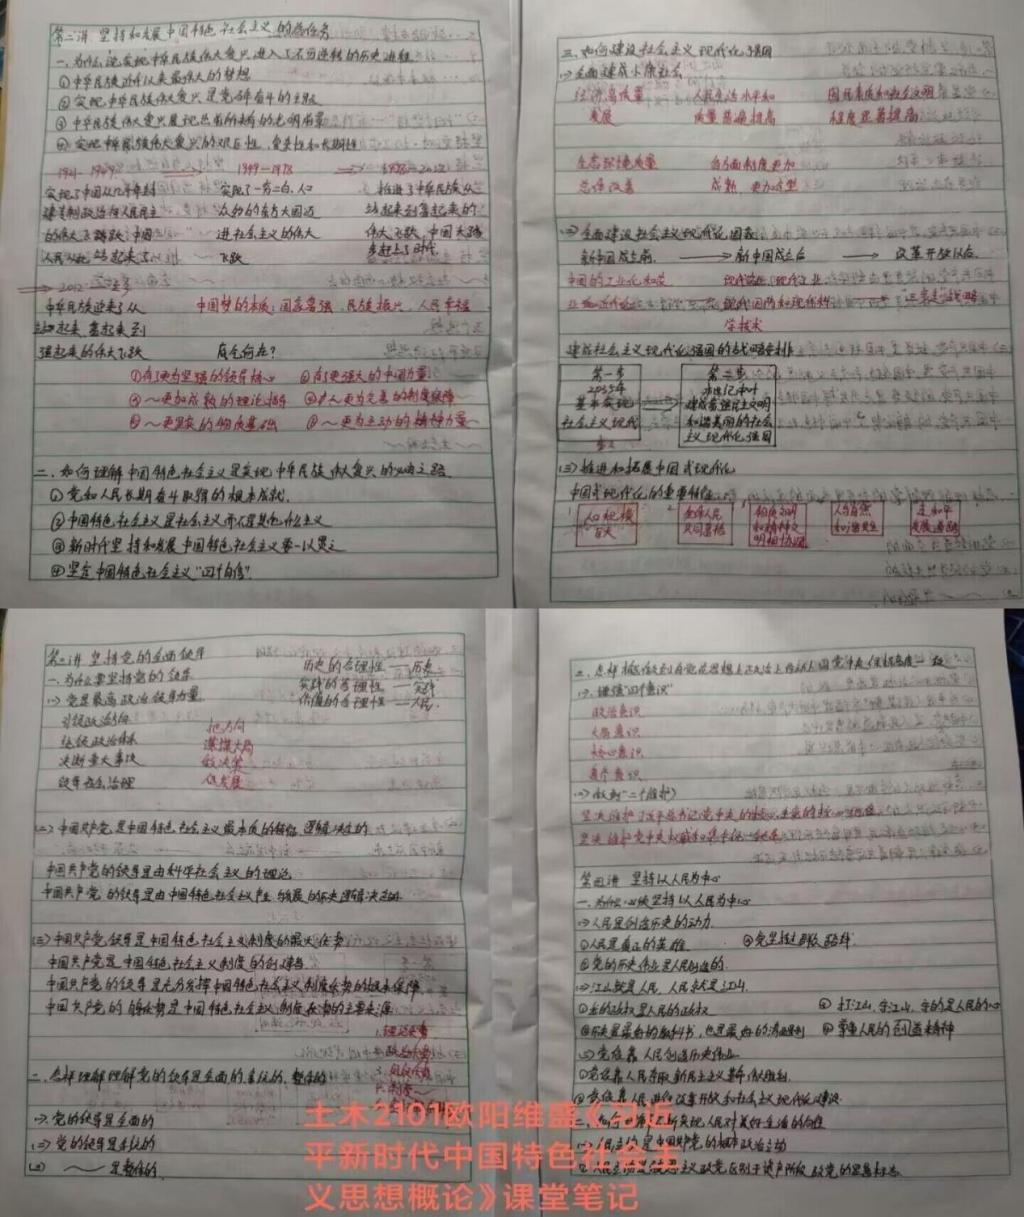 第二讲 坚持和发展中国特色社会主义的总任务
一、为什么说实现中华民族伟大复兴进入了不可逆转的历史进程
①中华民族近代以来最伟大的梦想
②实现中华民族伟大复兴是党百年奋斗的主题
③中华民族伟大复兴展现出前所未有的光明前景
④实现中华民族伟大复兴的艰巨性、复杂性和长期性
1921-1949 1949-1978 1978-2012
实现了中国从几千年封 实现了一穷二白、人口 推进了中华民族从
建专制政治向人民民主 众多的东方大国迈 站起来到富起来的
的伟大飞跃 中国 进社会主义的伟大 伟大飞跃,中国大踏
人民从此站起来了 飞跃 步赶上了时代
2012—
中华民族迎来了从 中国梦的本质:国家富强、民族振兴、人民幸福
站起来、富起来到
强起来的伟大飞跃
①有了更为坚强的领导核心 ②有了更强大的中国力量
③~更加成熟的理论指导 ④~更为完善的制度保障
⑤~更坚实的物质基础 ⑥~更为主动的精神力量
二、如何理解中国特色社会主义是实现中华民族伟大复兴的必由之路
①党和人民长期奋斗取得的根本成就
②中国特色社会主义是社会主义而不是其他什么主义
③新时代坚持和发展中国特色社会主义要一以贯之
④坚定中国特色社会主义“四个自信”
三、如何建设社会主义现代化强国
(一)全面建成小康社会
经济高质量 人民生活水平和 国民素质和社会文明
发展 质量普遍提高 程度显著提高
生态环境质量 各方面制度更加
总体改善 成熟更加定型
(二)全面建设社会主义现代化国家
新中国成立前 新中国成立后 改革开放以后
中国的工业化和农 现代农业、现代工业
现代国防和现代科 “三步走”战略
学技术
建成社会主义现代化强国的战略安排
第一步
2035年
基本实现
社会主义现代
化
第二步
本世纪中叶
建成富强民主文明
和谐美丽的社会
主义现代化强国
(三)推进和拓展中国式现代化
中国式现代化的重要特征
人口规模 全体人民 物质文明 人与自然 走和平
巨大 共同富裕 和精神文 和谐共生 发展道路
明相协调
讲 坚持党的全面领导
一、为什么要坚持党的领导 历史的合理性—历史
(一)党是最高政治领导力量 实践的合理性—实践
价值的合理性—人民
引领政治方向 把方向
统领政治体系 谋大局
决断重大事项 做决策
领导社会治理 促发展
(二)中国共产党是中国特色社会主义最本质的特征
中国共产党的领导是由科学社会主义的理论
中国共产党的领导是由中国特色社会主义产生与发展的历史逻辑决定的
(三)中国共产党领导是中国特色社会主义制度的最大优势
中国共产党是中国特色社会主义制度的创建者
中国共产党的领导是充分发挥中国特色社会主义制度优势的根本保障
中国共产党的自身优势是中国特色社会主义制度优势的主要来源
1.理论优势
2.政治优势
3.组织优势
二、怎样理解理解党的领导是全面的、系统的、整体的
(一)党的领导是全面的
(二)党的领导是系统的
(三)~是整体的
(一)增强“四个意识”
政治意识
大局意识
核心意识
看齐意识
(二)做到“两个维护”
坚决维护习近平总书记党中央的核心、全党的核心地位
坚决维护党中央权威和集中统一领导
第四讲 坚持以人民为中心
一、为什么必须坚持以人民为中心
(一)人民是创造历史的动力
①人民是真正的英雄 ③党坚持群众路线
②党的历史伟业是人民创造的
(二)江山就是人民,人民就是江山
③打江山、守江山,守的是人民的心
④尊重人民的创造精神
(三)党依靠人民创造历史伟业
①党依靠人民夺取新民主主义革命伟大胜利
②党依靠人民进行改革开放和社会主义现代化建设
土木2101欧阳维盛《习近
平新时代中国特色社会主
义思想概论》课堂笔记